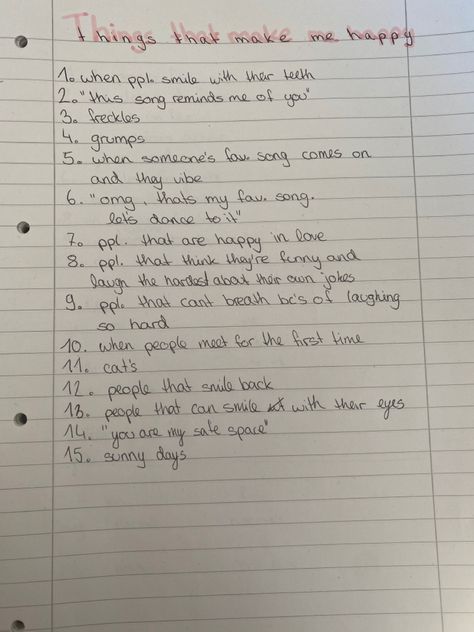 Things that make me happy
1. when ppl. smile with their teeth
2. "this song reminds me of you"
3. freckles
4. grumps
5. when someone's fav. song comes on
and they vibe
6. "omg, thats my fav. song.
let's dance to it"
7. ppl. that are happy in love
8. ppl. that think they're funny and
laugh the hardest about their own jokes
9. ppl. that cant breath bc's of laughing
so hard
10. when people meet for the first time
11. cat's
12. people that smile back
13. people that can smile with their eyes
14. "you are my safe space"
15. sunny days